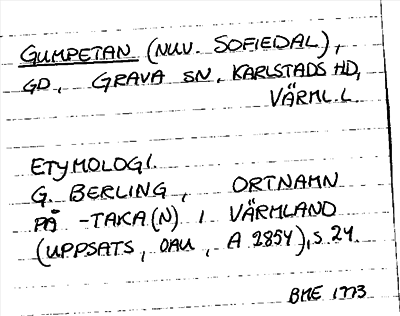 GUMPETAN (NUV. SOFIEDAL),
GD, GRAVA SN, KARLSTADS HD,
VÄRML.L.
ETYMOLOGI.
G. BERLING, ORTNAMN
PÅ -TAKA(N) I VÄRMLAND
(UPPSATS, OAU, A 2854), S 24.
BME 1773